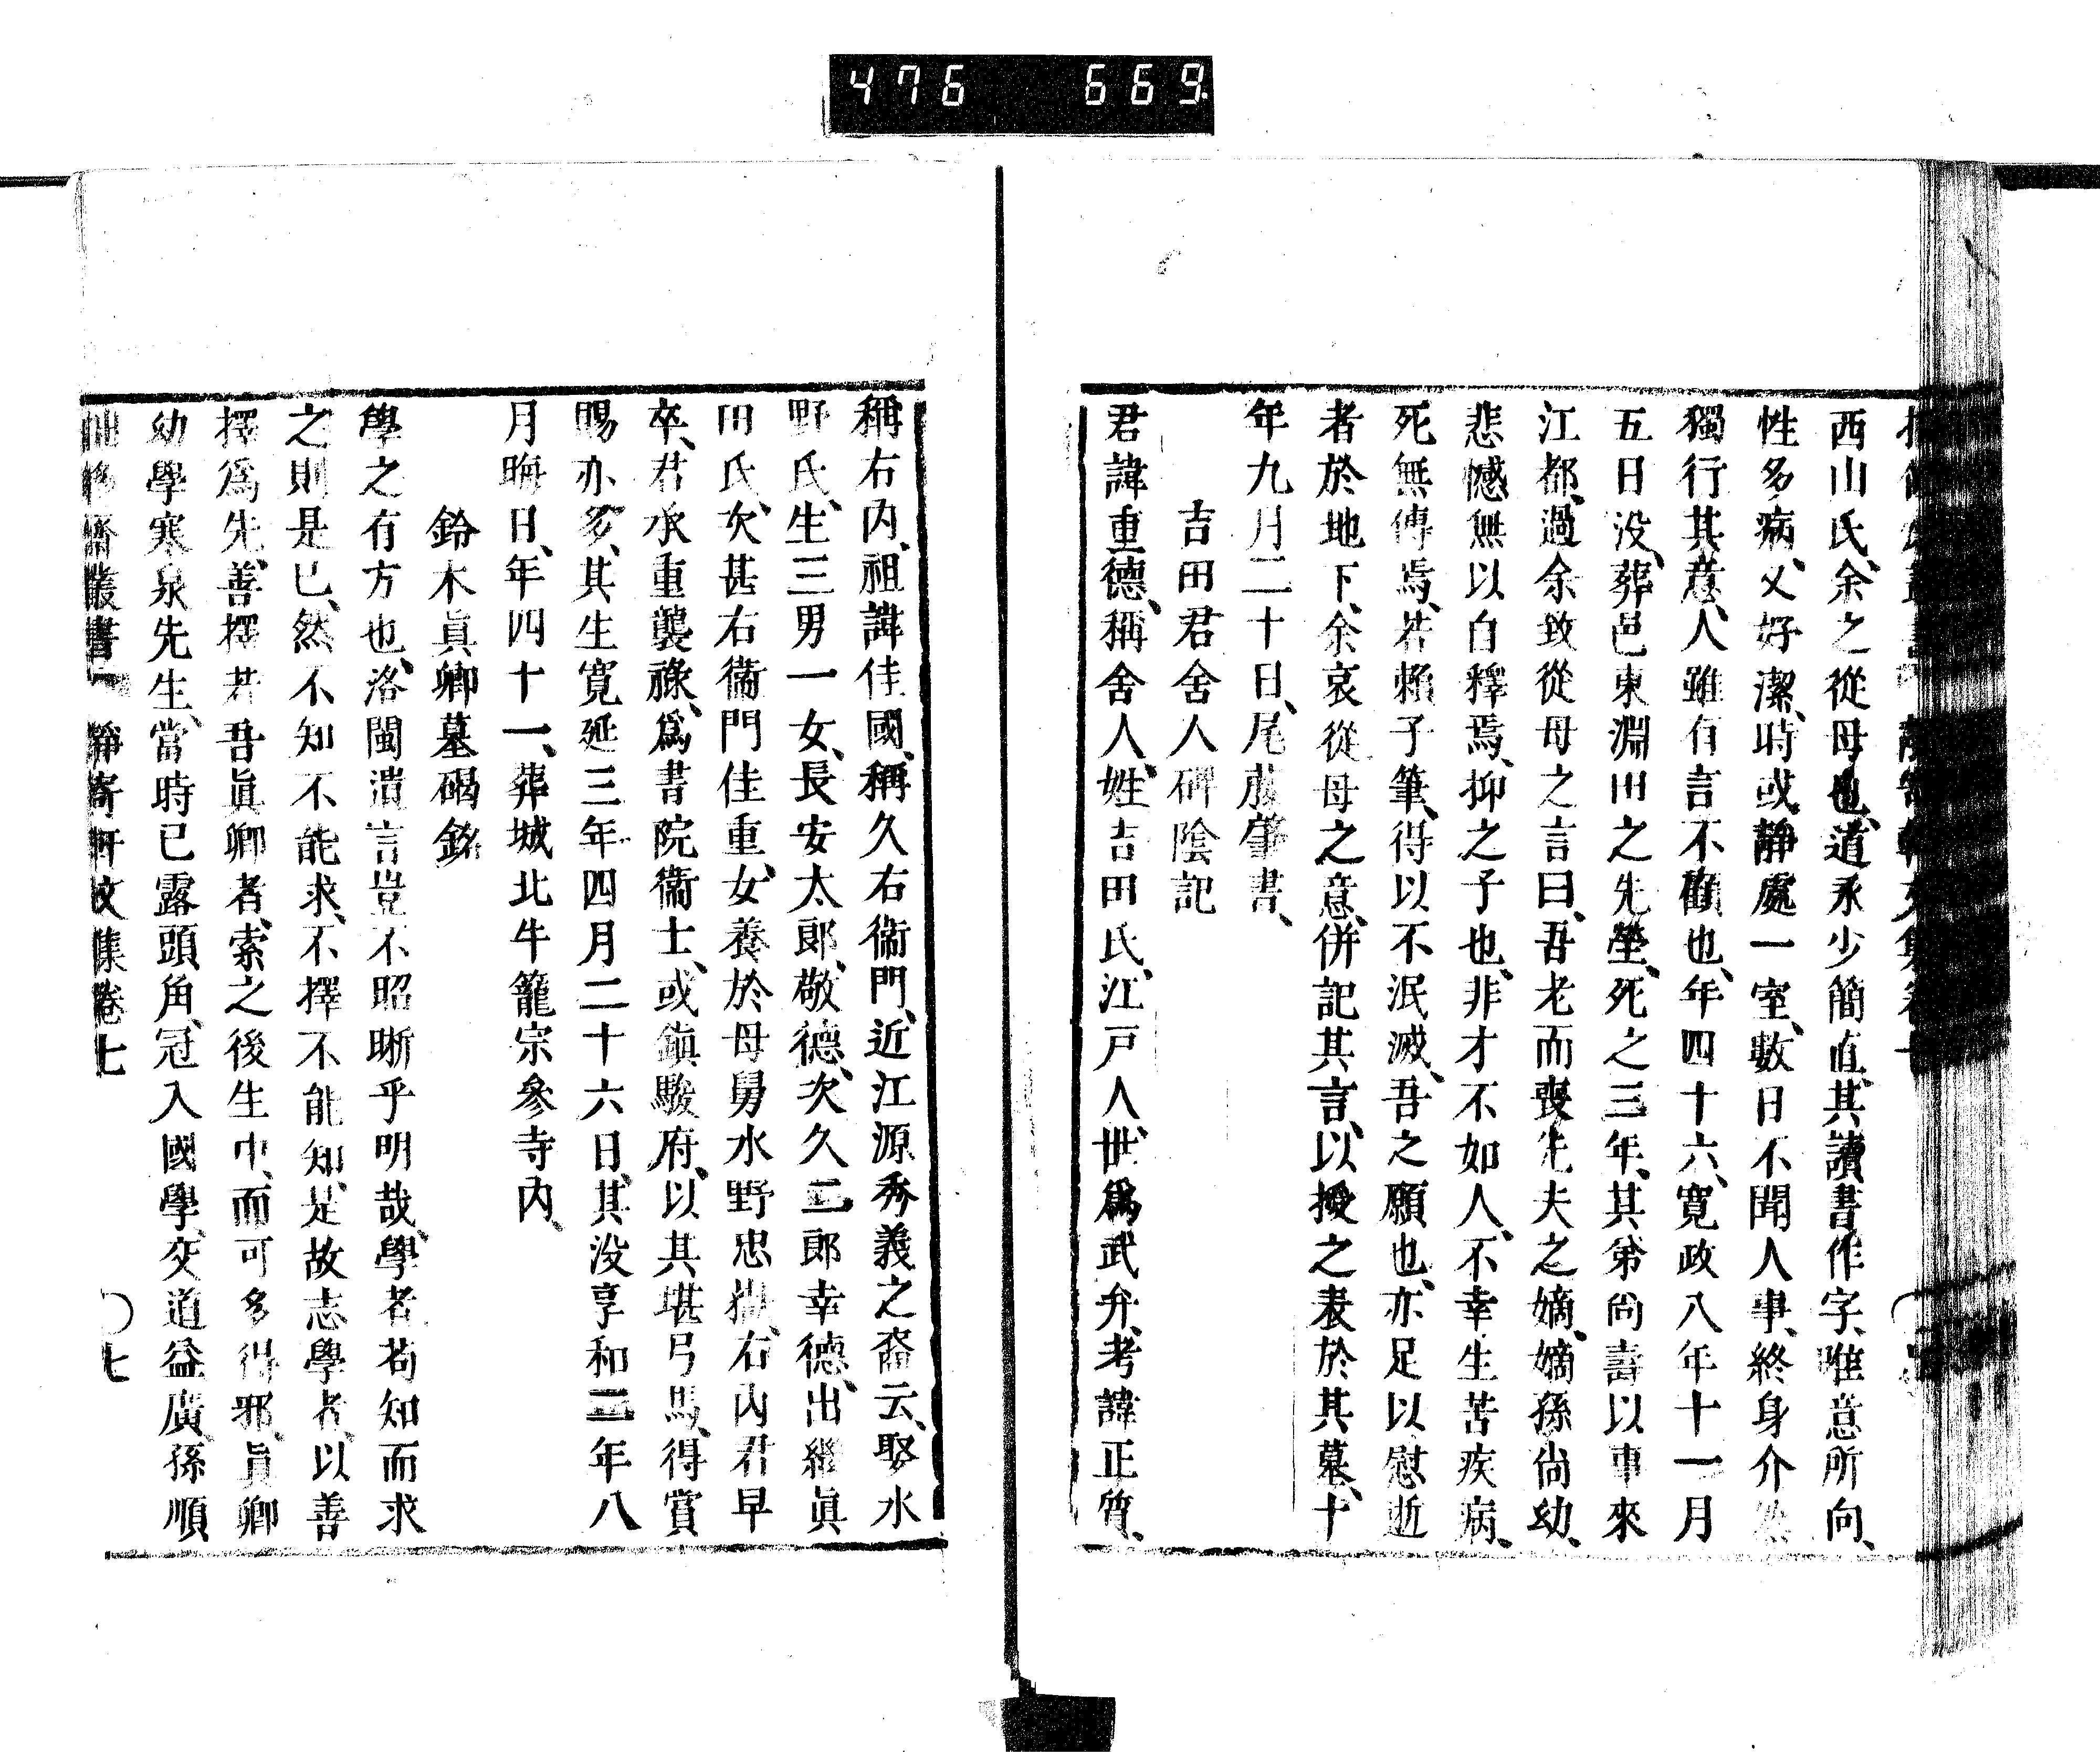 476 669.
西山氏、余之從母也、道承少簡直、其讀書作字、唯意所向、
性多病、又好潔、時或靜處一室、數日不聞人事、終身介
獨行其意、人雖有言不顧也、年四十六、寛政八年十一月
五日没、葬邑東淵田之先塋、死之三年、其弟尚壽以事來
江都、過余致從母之言曰、吾老而喪先夫之嫡、嫡孫尚幼、
悲憾無以自釋焉、抑之子也、非才不如人、不幸生苦疾病、
死無傳焉、若賴子筆、得以不泯滅、吾之願也、亦足以慰逝
者於地下、余哀從母之意、併記其言、以授之表於其墓、十
年九月二十日、尾藤肇書、
吉田君舍人碑陰記
君諱重德、稱舍人、姓吉田氏、江戸人、世爲武弁、考諱正質、
稱右内、祖諱佳國、稱久右衞門、近江源秀義之裔云、娶水
野氏、生三男一女、長安太郎、敬德、次久二郎幸德、出繼眞
田氏、次甚右衞門佳重、女養於母舅水野忠、右内君早
卒、君承重襲祿、爲書院衞士、或鎭駿府、以其堪弓馬、得賞
賜亦多、其生寛延三年四月二十六日、其没享和三年八
月晦日、年四十一、葬城北牛籠宗參寺内、
鈴木眞卿墓碣銘
學之有方也、洛閩遺言豈不昭晰乎明哉、學者苟知而求
之則是已、然不知不能求、不擇不能知、是故志學者、以善
擇爲先、善擇若吾眞卿者、索之後生中、而可多得邪、眞卿
幼學寒泉先生、當時已露頭角、冠入國學、交道益廣、孫順
叢書 靜寄軒文集卷七 〇七